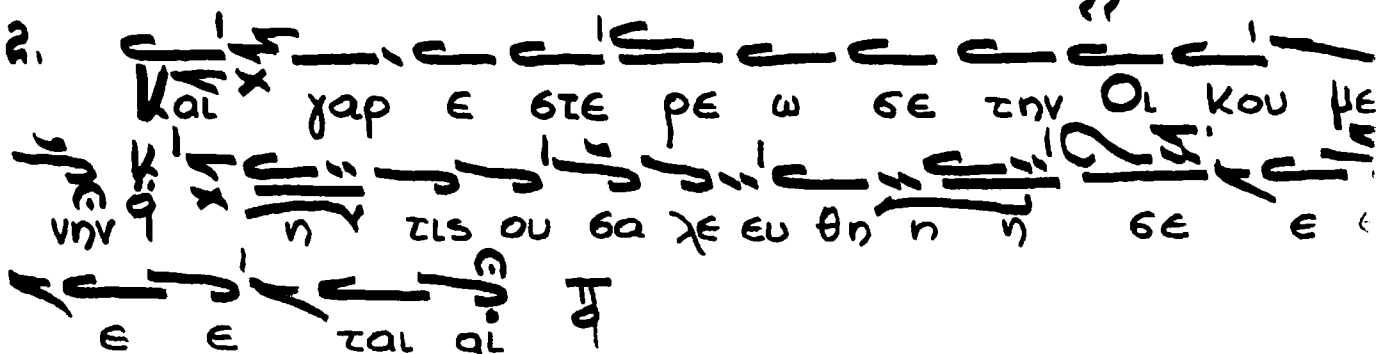 2. Και γαρ ε στε ρε ω σε την Οι κου με
νην η τις ου σα λε ευ θη η η σε ε ε
ε ε ται αι